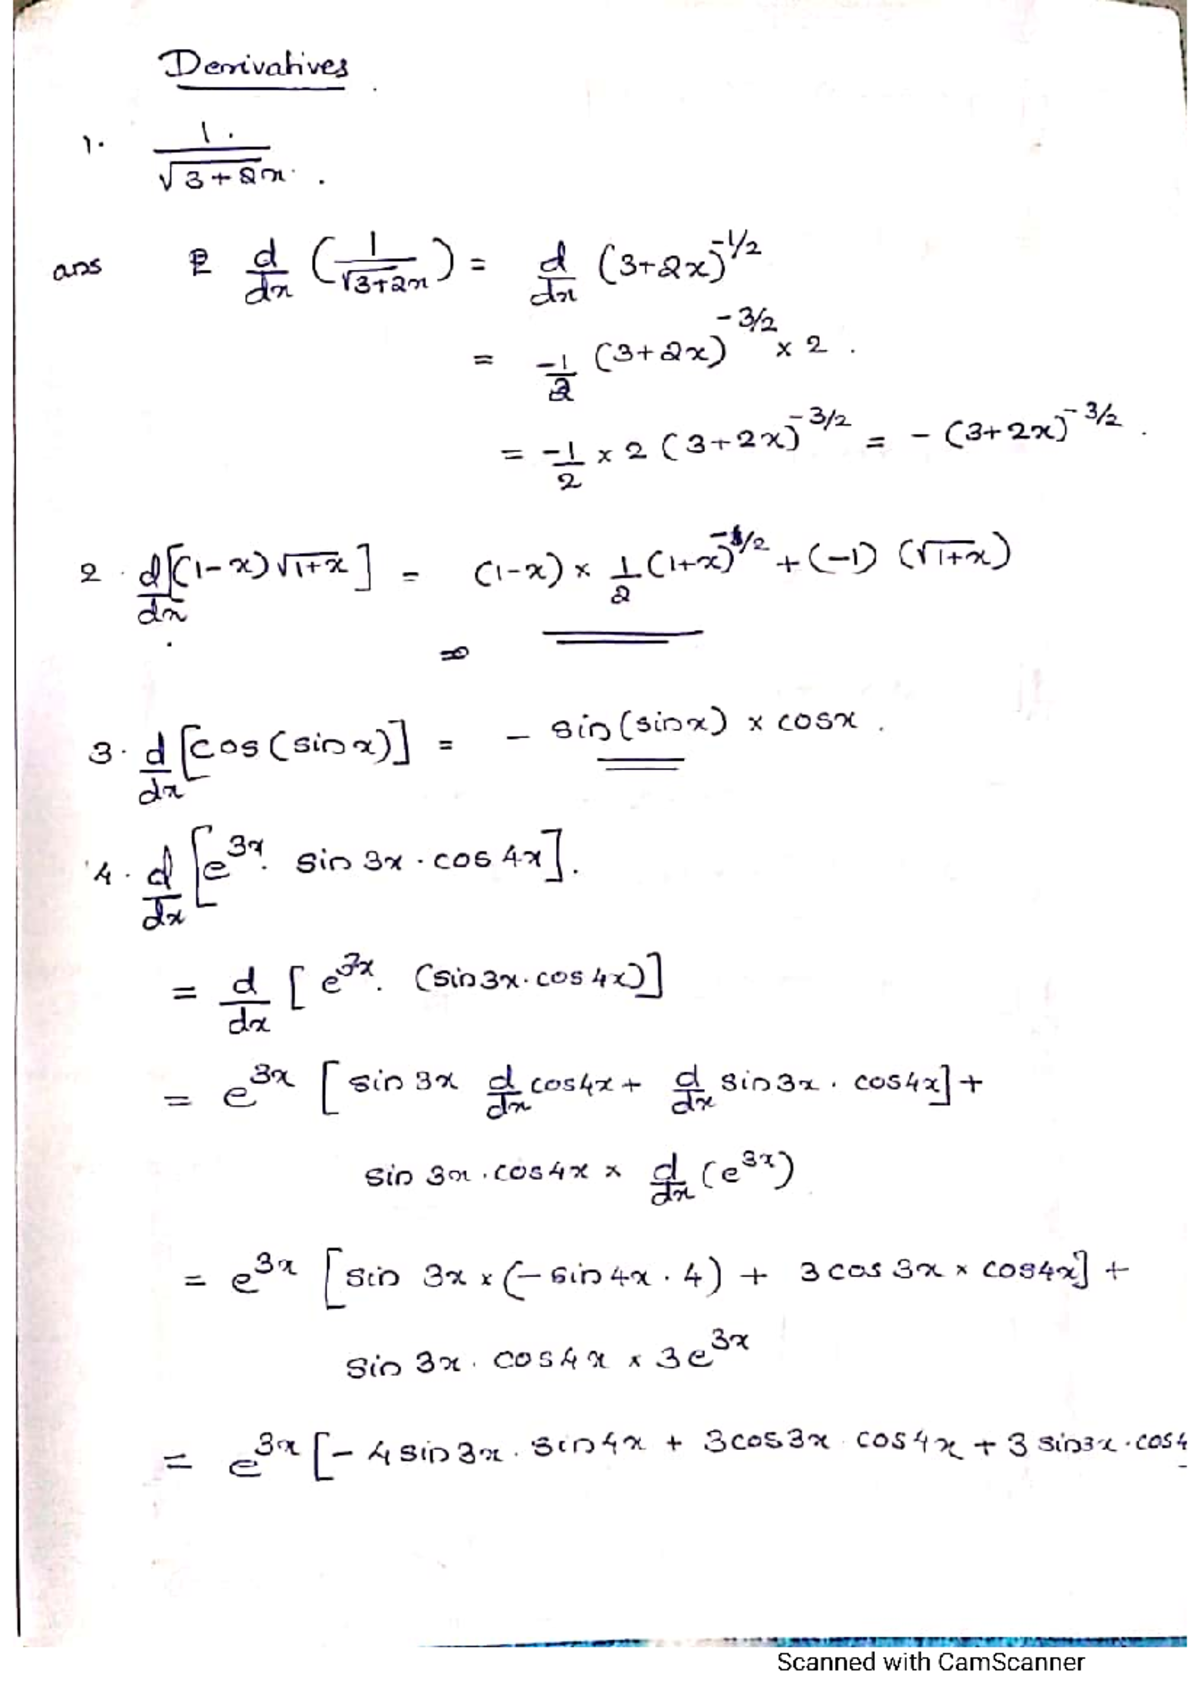 Derivatives
1. 1/√(3+2x).
ans d/dx (1/√(3+2x)) = d/dx (3+2x)^(-1/2)
= -1/2 (3+2x)^(-3/2) × 2.
= -1/2 × 2 (3+2x)^(-3/2) = -(3+2x)^(-3/2).
2. d/dx [(1-x)√(1+x)] = (1-x) × 1/2 (1+x)^(-1/2) + (-1) (√(1+x))
3. d/dx [cos(sinx)] = - sin(sinx) × cosx.
4. d/dx [e^(3x). sin 3x. cos 4x].
= d/dx [e^(3x). (sin3x.cos4x)]
= e^(3x) [sin 3x d/dx cos4x + d/dx sin3x. cos4x] +
sin 3x.cos4x × d/dx (e^(3x))
= e^(3x) [sin 3x × (-sin4x.4) + 3cos3x × cos4x] +
sin 3x. cos4x × 3e^(3x)
= e^(3x) [-4sin3x. sin4x + 3cos3x. cos4x + 3 sin3x.cos4
Scanned with CamScanner